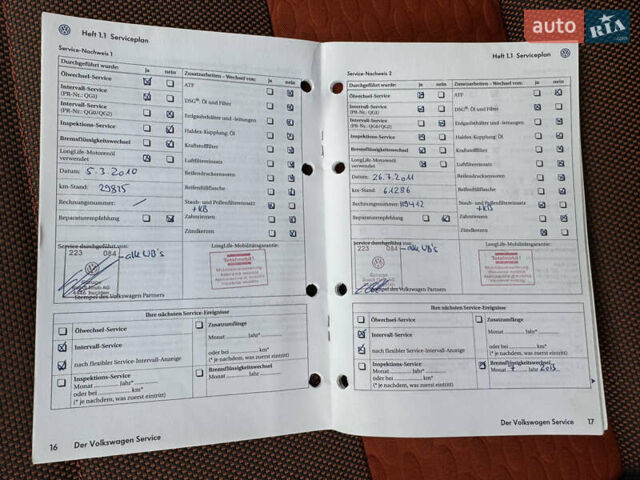 auto RIA
.com
Heft 1.1 Serviceplan
Service-Nachweis 1
Durchgeführt wurde: ja nein
Zusatzarbeiten – Wechsel von: ja nein
Ölwechsel-Service
ATF
Intervall-Service
(PR-Nr.: QG1)
DSG®: Öl und Filter
Intervall-Service
(PR-Nr.: QG0/QG2)
Erdgasbehälter und -leitungen
Inspektions-Service
Haldex-Kupplung: Öl
Bremsflüssigkeitswechsel
Kraftstofffilter
LongLife-Motorenöl
verwendet
Luftfiltereinsatz
Datum: 5.3.2010
Reifendruckssensoren
km-Stand: 29815
Reifenfüllflasche
Rechnungsnummer: /
Staub- und Pollenfiltereinsatz
+KB
Reparaturempfehlung
Zahnriemen
Zündkerzen
Service durchgeführt von:
223 084 – alle UB's
Stempel des Volkswagen Partners
LongLife-Mobilitätsgarantie:
Totalmobil!
Ihre nächsten Service-Ereignisse
Ölwechsel-Service
Intervall-Service
nach flexibler Service-Intervall-Anzeige
Inspektions-Service
Monat Jahr*
oder bei km*
(* je nachdem, was zuerst eintritt)
Zusatzumfänge
Monat Jahr*
oder bei km*
(* je nachdem, was zuerst eintritt)
Bremsflüssigkeitswechsel
Monat Jahr
16 Der Volkswagen Service
Heft 1.1 Serviceplan
Service-Nachweis 2
Durchgeführt wurde: ja nein
Zusatzarbeiten – Wechsel von: ja nein
Ölwechsel-Service
ATF
Intervall-Service
(PR-Nr.: QG1)
DSG®: Öl und Filter
Intervall-Service
(PR-Nr.: QG0/QG2)
Erdgasbehälter und -leitungen
Inspektions-Service
Haldex-Kupplung: Öl
Bremsflüssigkeitswechsel
Kraftstofffilter
LongLife-Motorenöl
verwendet
Luftfiltereinsatz
Datum: 26.7.2011
Reifendruckssensoren
km-Stand: 61286
Reifenfüllflasche
Rechnungsnummer: 119412
Staub- und Pollenfiltereinsatz
+KB
Reparaturempfehlung
Zahnriemen
Zündkerzen
Service durchgeführt von:
223 084 – alle UB's
Stempel des Volkswagen Partners
LongLife-Mobilitätsgarantie:
Totalmobil!
Ihre nächsten Service-Ereignisse
Ölwechsel-Service
Intervall-Service
nach flexibler Service-Intervall-Anzeige
Inspektions-Service
Monat Jahr*
oder bei km*
(* je nachdem, was zuerst eintritt)
Zusatzumfänge
Monat Jahr*
oder bei km*
(* je nachdem, was zuerst eintritt)
Bremsflüssigkeitswechsel
Monat 7 Jahr 2013
Der Volkswagen Service 17